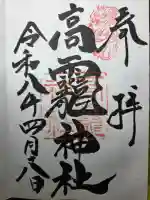 奉拝
高龗神社
令和八年四月八日